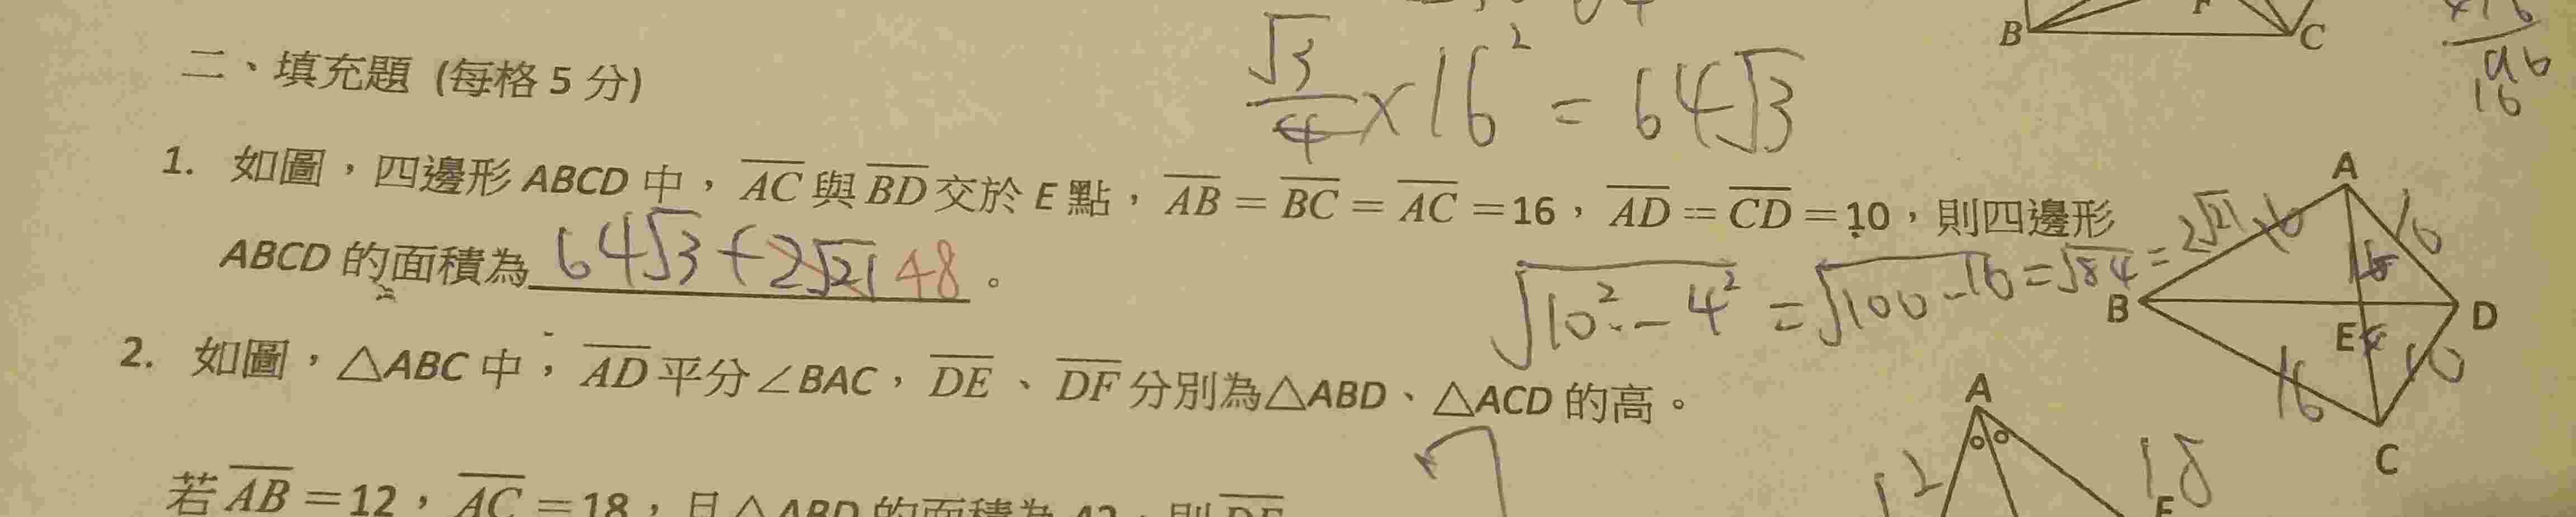 二、填充題 (每格 5 分)
√3/4 × 16² = 64√3
B
C
1. 如圖，四邊形 ABCD 中，AC 與 BD 交於 E 點，AB = BC = AC =16，AD = CD =10，則四邊形
ABCD 的面積為 64√3+2√21 48 。
√10²-4² = √100-16 = √84 = 2√21
A
B
E
D
C
16
10
2. 如圖，△ABC 中，AD 平分∠BAC，DE、DF 分別為△ABD、△ACD 的高。
A
12
18
若 AB =12，AC =18，且△ABD 的面積為 42，則 DE